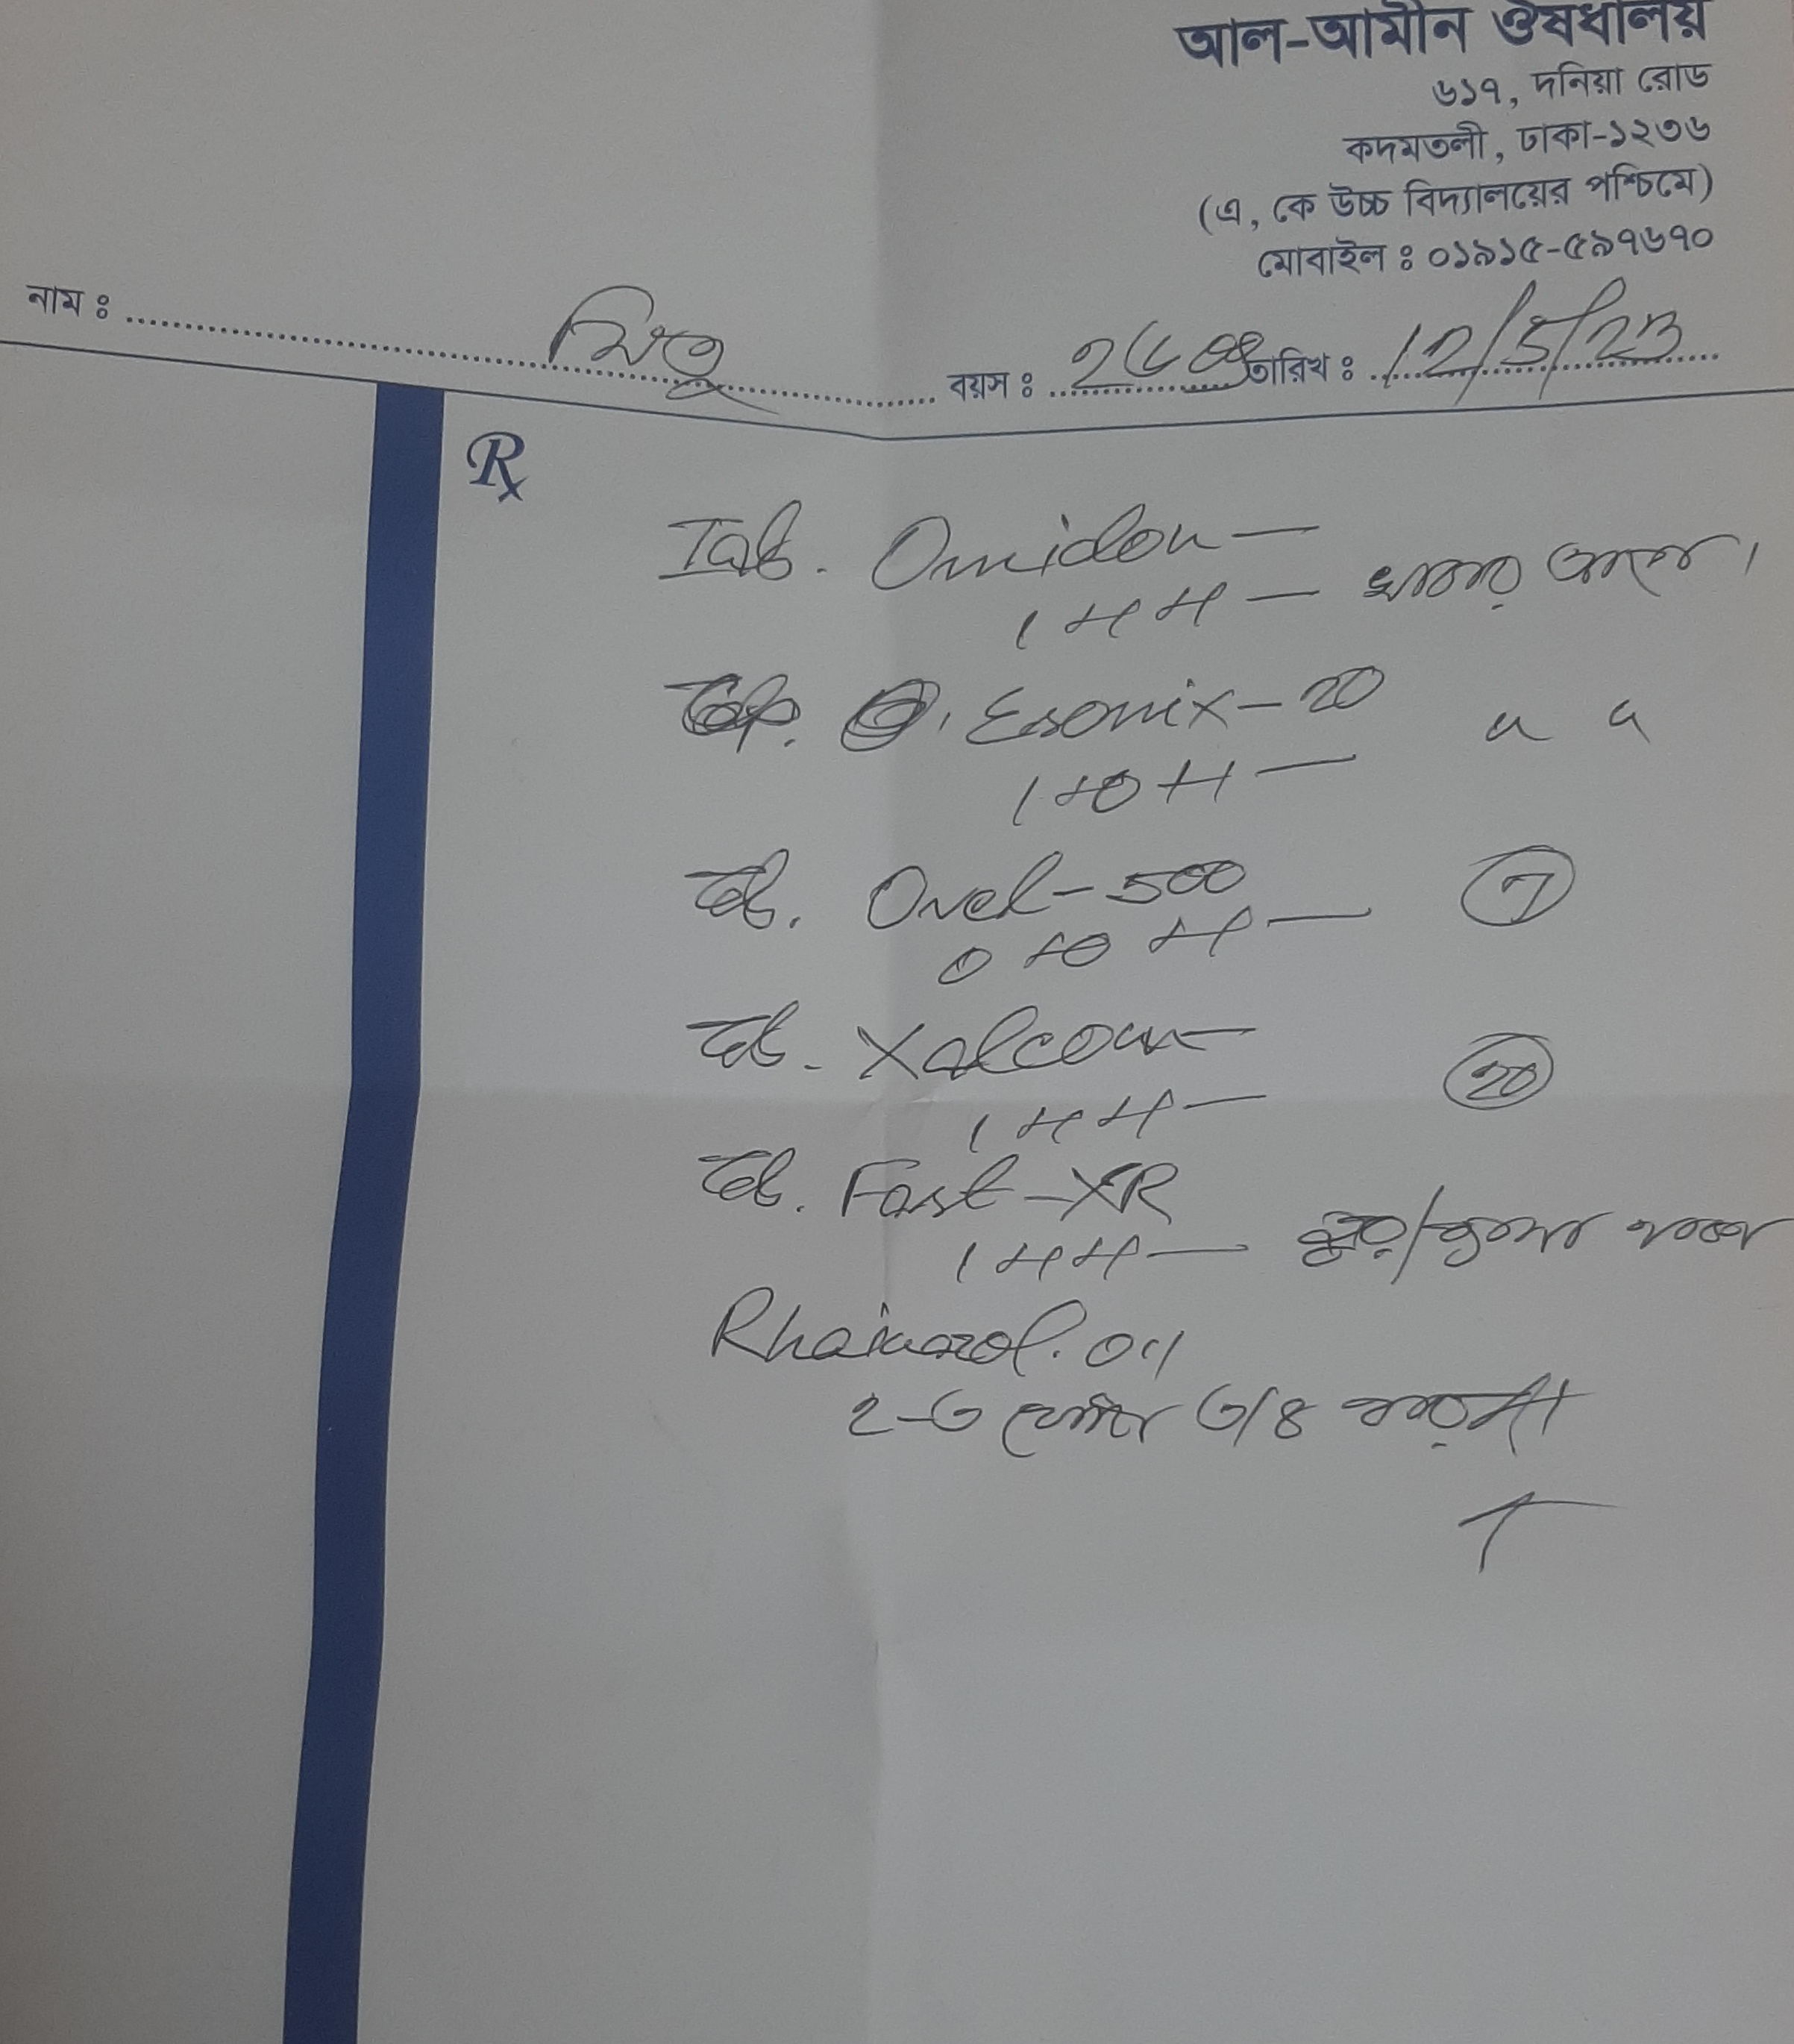 আল-আমীন ঔষধালয়
৬১৭, দনিয়া রোড
কদমতলী, ঢাকা-১২৩৬
(এ, কে উচ্চ বিদ্যালয়ের পশ্চিমে)
মোবাইল ঃ ০১৯১৫-৫৯৭৬৭০
নাম ঃ মিতু বয়স ঃ তারিখ ঃ 12/5/23
Rx
Tab. Omidon —
1+1+1 — খাবার আগে।
Cap. Esonix - 20 " "
1+0+1 —
Tab. Ovel - 500 7
0+0+1 —
Tab. Xalcoux — 20
1+1+1 —
Tab. Fast - XR
1+1+1 — জ্বর/ব্যথা থাকলে
Rhinozol. 0.1
২-৩ ফোঁটা ৩/৪ বার